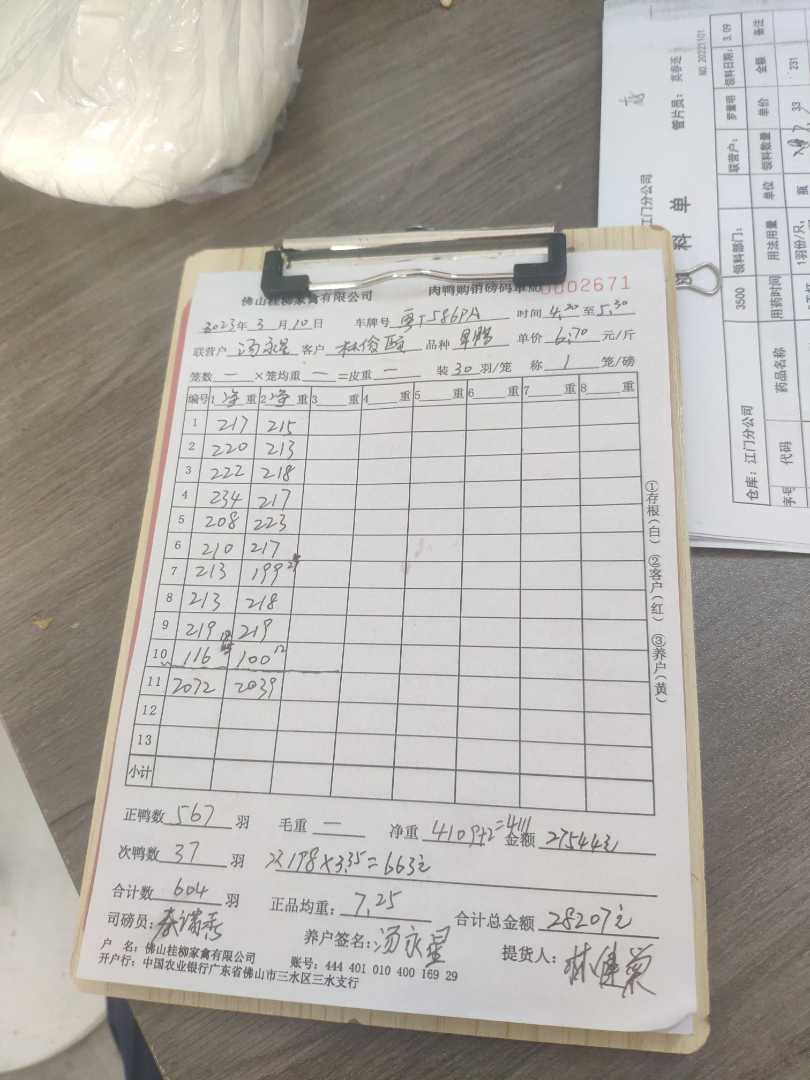 佛山桂柳家禽有限公司 肉鸭购销磅码单 0002671
2023年3月10日 车牌号 粤J586PA 时间 4.20 至 5.30
联营户 汤永星 客户 品种 单价 6.70 元/斤
笼数 一 ×笼均重 一 =皮重 一 装 30 羽/笼 称 1 笼/磅
编号 1 净 重 2 净 重 3 重 4 重 5 重 6 重 7 重 8 重
1 217 215
2 220 213
3 222 218
4 234 217
5 208 223
6 210 217
7 213 199
8 213 218
9 219 219
10 116 100 12
11 2072 2039
12
13
小计
正鸭数 567 羽 毛重 一 净重 4109+2=4111 金额 27544元
次鸭数 37 羽 次198×3.35=663元
合计数 604 羽 正品均重: 7.25 合计总金额 28207元
司磅员: 养户签名: 汤永星 提货人:
户 名: 佛山桂柳家禽有限公司 账号: 444 401 010 400 169 29
开户行: 中国农业银行广东省佛山市三水区三水支行
①存根(白) ②客户(红) ③养户(黄)
江门分公司 管片员: NO.20221101
料 单
仓库: 江门分公司 3500 领料部门: 联营户: 领料日期: 3.09
序号 代码 药品名称 用药时间 用法用量 单位 领料数量 单价 金额 备注
1羽份/只, 瓶 33 231